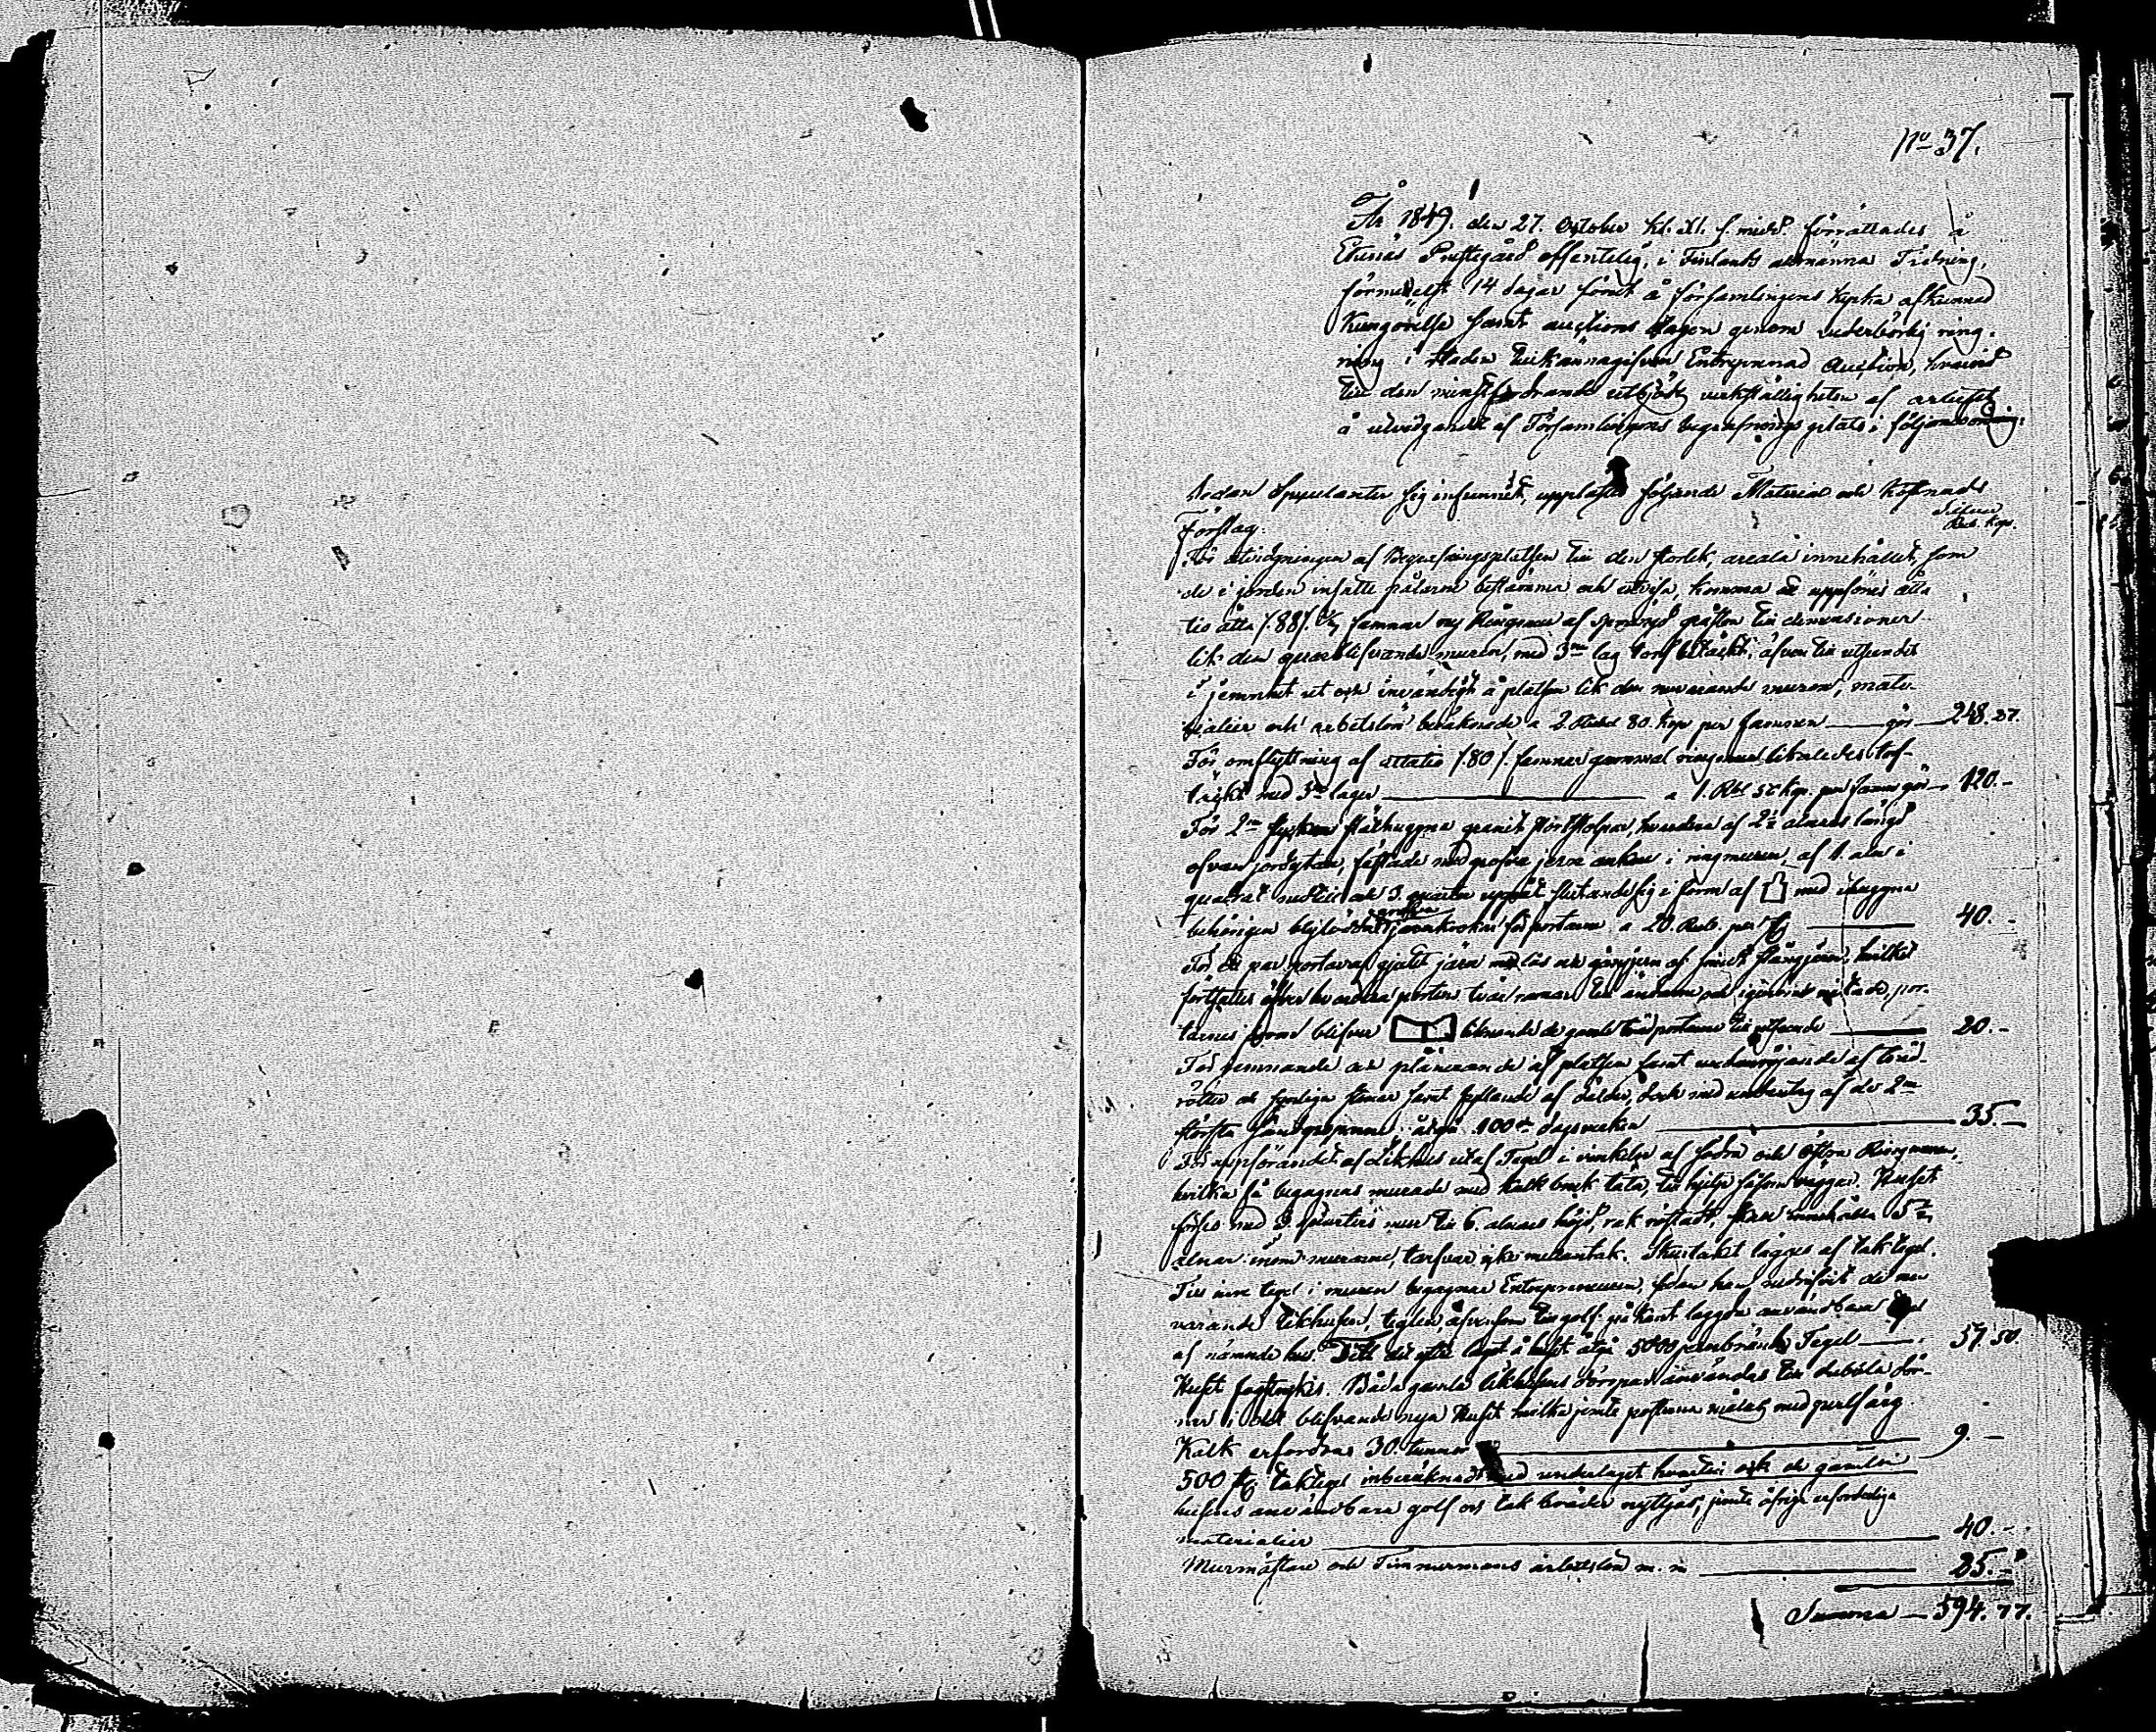 No 37.
År 1849. den 27. October kl. XI. f. midd. förrättades å
Ekenäs Prestegård offentelig, i Finlands allmänna Tidning,
förmedelst 14 dagar förut å församlingens kyrka afkunnad
Kungörelse samt auctions dagen genom vederbörlig ring-
ning i staden tillkännagifven Entreprenad Auction, hvarvid
till den minstfordrande utbjöds verkställigheten af arbetet
å utvidgandet af Församlingens begrafnings plats i följande ordning:
Sedan Speculanter sig infunnit, upplästes följande Material och Kostnads
Förslag.
Silfver
Rub. Kop.
För utvidgningen af Begrafningsplatsen till den storlek, areala innehållet, som
de i jorden insatte pålarne bestämma och utvisa, komma att uppföras åtta
tio åtta /.88/. famnar ny Ringmur af sprängd gråsten till dimensioner
lik den qvarblifvande muren, med 3ne lag torf betäckt, äfven till utseendet
i jemnhet ut och invändigt å platsen lik den nuvarande muren, mate-
rialier och arbetslön beräknade a 2. Rubel 80. kop per famnen gör 248. 27.
För omflyttning af åttatio /.80/. famnar gammal ringmur likaledes torf-
täckt med 3ne lager a 1. Rbl 50 kop. per famn gör 120.-
För 2ne stycken släthuggna granit portstolpar, hvardera af 2½ alnars längd
ofvan jordytan, fästade med grofva jern ankare i ringmuren, af 1. aln i
quadrat nedtill och 3. quarter upptill slutande sig i form af med inhuggna
behörigen blylödda grofva jernkrokar för portarne a 20. Rub. per st 40. -
För ett par portar af gjutit jern med lås och gångjern af smidt stångjern, hvilka
förses öfver hvardera porten tvär ramar till ändarne
tarnes form blifver liknande de gamle träd portarne till utseende 20. -
För jemnande och planerande af platsen samt undanrödjande af träd-
rötter och synliga stenar samt fyllande af dälder, dock med undantag af de 2ne
största sandgroparne åtgå 100de dagsverken 35. -
För uppförandet af Likhus utaf Tegel i vinkeln af södra och östra Ringmuren,
hvilka få begagnas murade med kalkbruk täta, till hjelp såsom väggar. Huset
förses med 3 quarters mur till 6. alnars höjd, rak röstadt,
alnar inom murarne, tarfvar icke mellantak. Skurtaket lägges af taktegel.
Till inre tegel i muren begagnar Entrepreneuren, sedan han nedrifvit de nu
varande Likhusen, teglen, äfvensom till golf på kant lagdt användbara
af nämnde hus. Till det yttre laget å huset åtgå 5000 jernbrända Tegel 57. 50.
Huset fogstrykes. Båda gamla likhusens dörrpar användas till dubbla dör-
rar i det blifvande nya Huset hvilka jemte posterna målas med perlfärg.
Kalk erfordras 30. tunnor 9. -
500 st. taktegel inberäknadt med underlaget hvartill ock de gamla
husens användbara golf och tak bräder nyttjas, jemte öfriga erforderliga
materialier 40. -
Murmästare och Timmermans arbetslön m. m 25. -
Summa 594. 77.